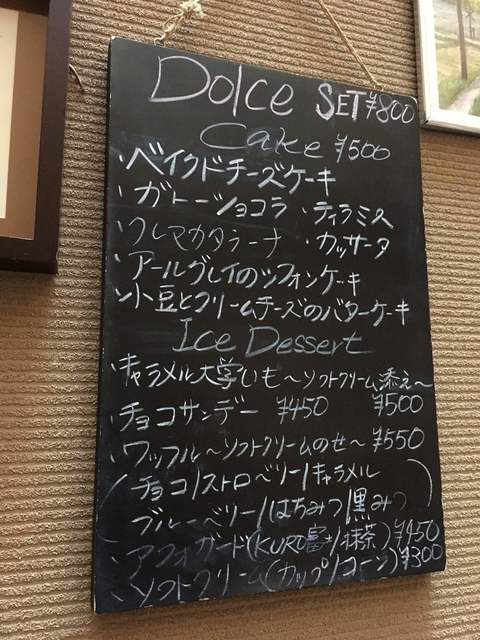 Dolce SET ¥800
Cake ¥500
・ベイクドチーズケーキ
・ガトーショコラ ・ティラミス
・クレマカタラーナ ・カッサータ
・アールグレイのシフォンケーキ
・小豆とクリームチーズのバターケーキ
Ice Dessert
・キャラメル大学いも～ソフトクリーム添え～ ¥500
・チョコサンデー ¥450
・ワッフル～ソフトクリームのせ～ ¥550
(チョコ/ストロベリー/キャラメル
ブルーベリー/はちみつ/黒みつ)
・アフォガード(KURO富士/抹茶) ¥450
・ソフトクリーム(カップ/コーン) ¥300